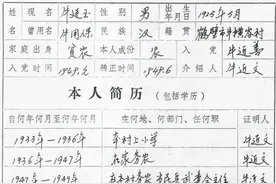 姓名 牛连玉 性别 男 出生年月日 1925年5月
曾用名 牛国保 民族 汉 籍贯 鹤壁市牛横岺村
家庭出身 贫农 本人成份 农 入党介绍人 牛道善
入党时间 1949.元 转正时间 1949.6 牛道文
本人简历(包括学历)
自何年何月至何年何月 在何地、何部门、任何职 证明人
1933年—1936年 本村上小学 牛道文
1936年—1947年 在家务农 牛道文
1947年—1949年 在本村务农 民兵 主任 牛道文